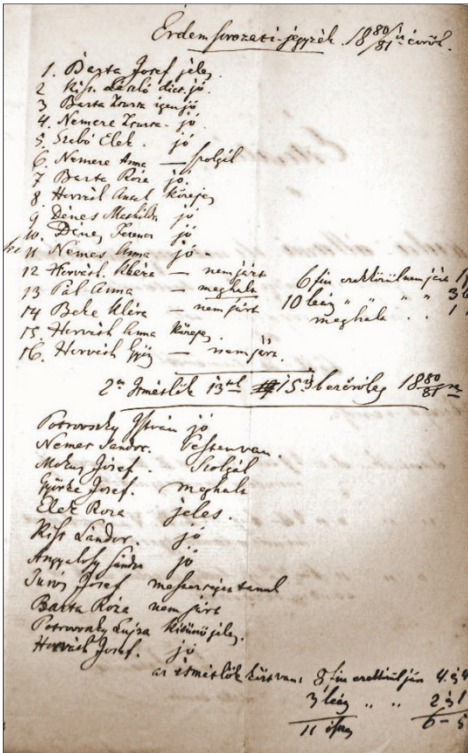 Érdemsorozati-jegyzék 1880/81 évről.
1. Barta Josef jeles
2 Kis László dics. jó
3 Barta Zsuzsa igen jó
4. Nemere Zsuzsa. jó.
5. Szabó Elek. jó
6. Nemere Anna — szolgál
7 Barta Róza jó.
8 Horváth Antal közepes
9 Dénes Mathild jó
10. Dénes Ferenc jó
11 Nemes Anna jó.
12 Horváth — nem járt
13 Pál Anna — meghala
14 Beke Klára — nem járt
15 Horváth Anna közepes
16. Horváth — nem járt.
6 fiu ezektől nem járt 1
10 leány " " " " 3
meghala . . 1
2. Ismétlők 13tól 15 bezárólag 1880/81
Petrovszky István jó
Nemes Sandor. Pesten van.
Josef. Szolgál
György Josef. meghalt
Elek Roza jeles.
Kiss Sándor. jó
Angyalosy Sándor jó
Josef mesterséget tanul
Barta Róza nem járt
Petrovszky Lujza kitünő jeles.
Horváth Josef. jó
az ismétlők közt van: 8 fiu ezektől jár 4. 4
3 leány " " 2 1
11 6 – 5